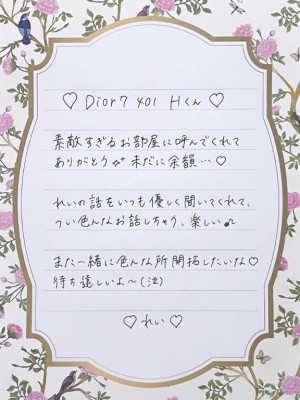 ♡ Dior7 401 Hくん ♡
素敵すぎるお部屋に呼んでくれて
ありがとう✧ 未だに余韻…♡
れいの話をいつも優しく聞いてくれて、
つい色んなお話しちゃう、楽しい♪
また一緒に色んな所開拓したいな♡
待ち遠しいよ〜(泣)
♡ れい ♡